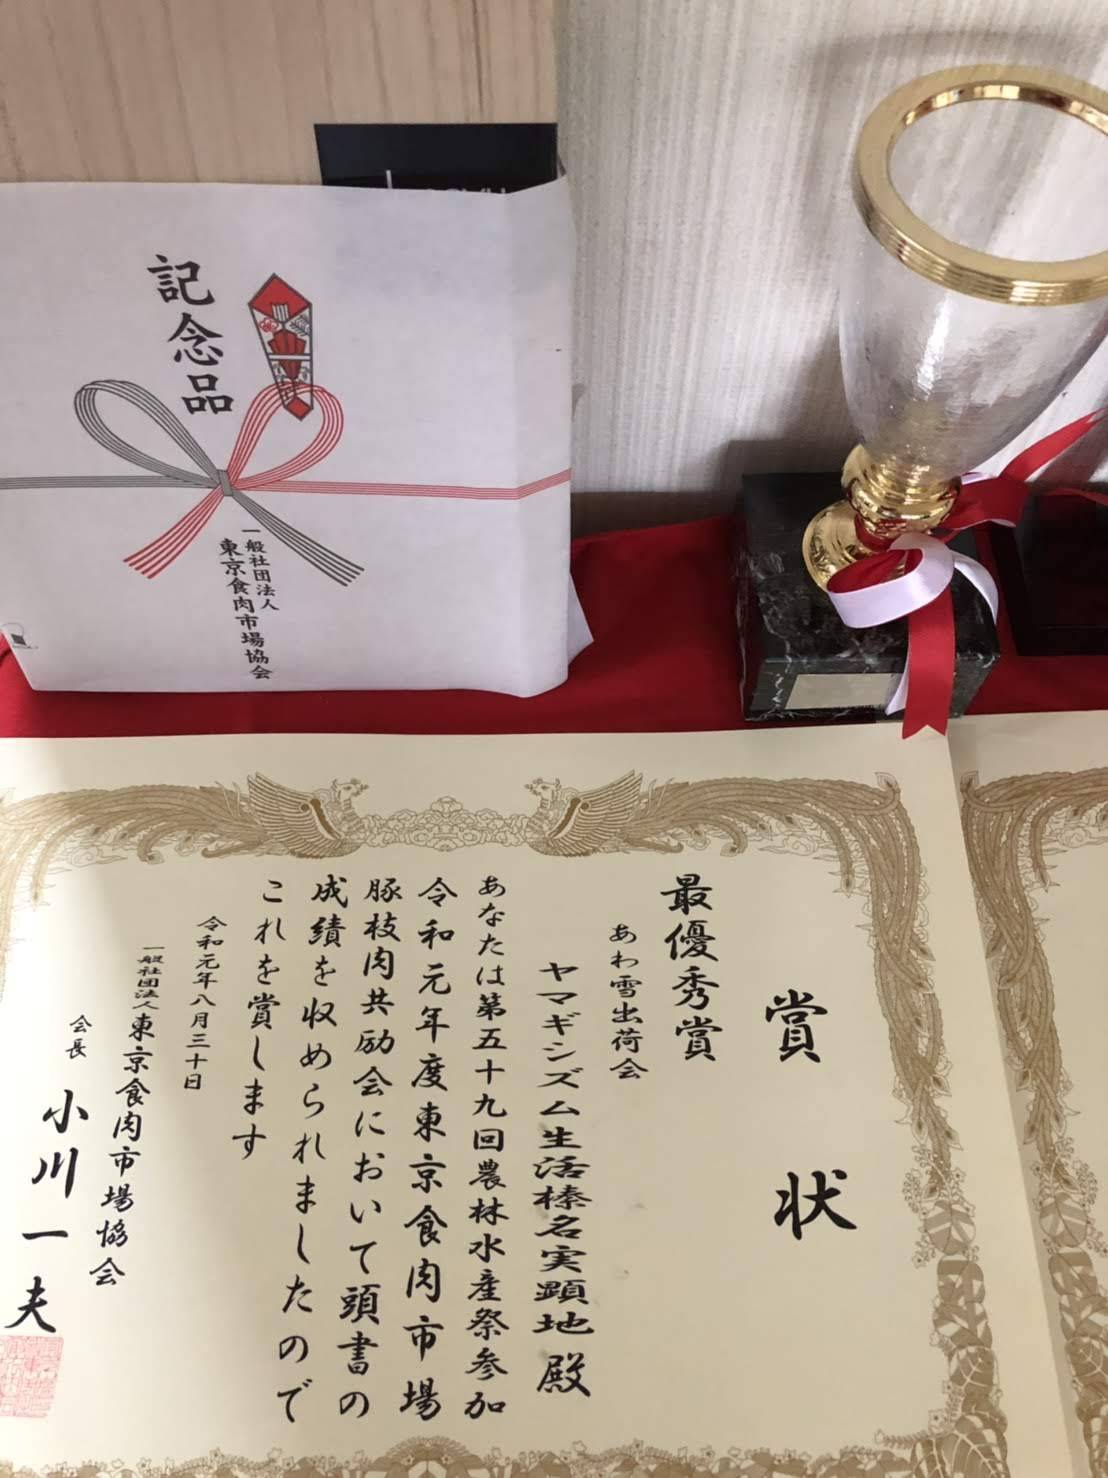 記念品
一般社団法人
東京食肉市場協会
賞状
最優秀賞
あわ雪出荷会
ヤマギシズム生活榛名実顕地 殿
あなたは第五十九回農林水産祭参加
令和元年度東京食肉市場
豚枝肉共励会において頭書の
成績を収められましたので
これを賞します
令和元年八月三十日
一般社団法人東京食肉市場協会
会長 小川一夫